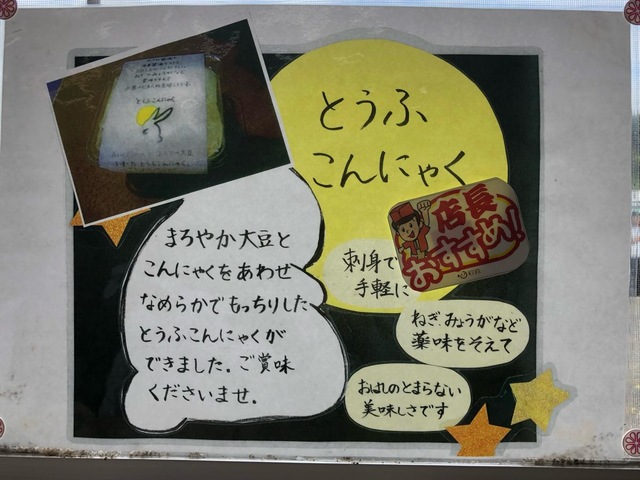 とうふ
こんにゃく
店長
おすすめ!
まろやか大豆と
こんにゃくをあわせ
なめらかでもっちりした
とうふこんにゃくが
できました。ご賞味
くださいませ。
刺身で
手軽に
ねぎ、みょうがなど
薬味をそえて
おはしのとまらない
美味しさです
とうふこんにゃく